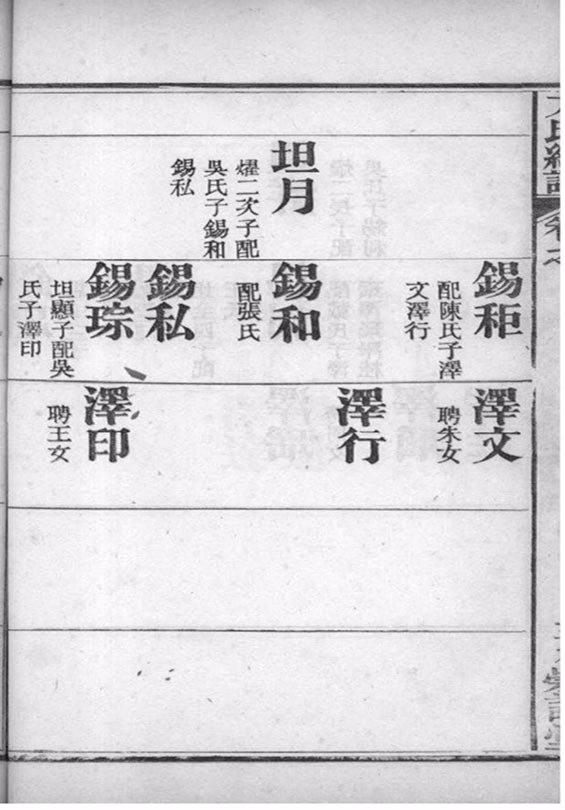 坦月
燿二次子配
吳氏子錫和
錫私
錫秬
配陳氏子澤
文澤行
錫和
配張氏
錫私
錫琮
坦顯子配吳
氏子澤印
澤文
聘朱女
澤行
澤印
聘王女